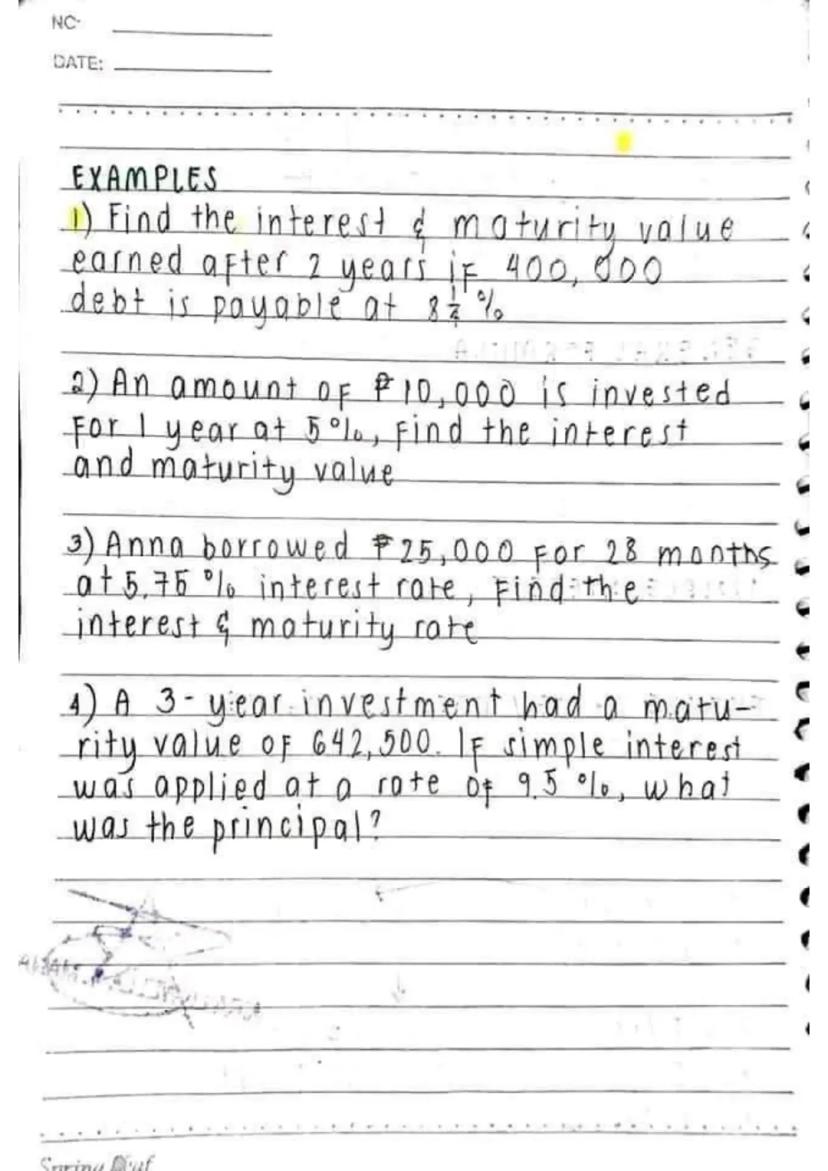 NO.
DATE:
EXAMPLES
1) Find the interest & maturity value
earned after 2 years if 400,000
debt is payable at 8 1/2 %
2) An amount of ₱10,000 is invested
for 1 year at 5%, find the interest
and maturity value
3) Anna borrowed ₱25,000 for 28 months
at 5.75% interest rate, find the
interest & maturity rate
4) A 3-year investment had a matu-
rity value of 642,500. If simple interest
was applied at a rate of 9.5%, what
was the principal?
Spring Leaf